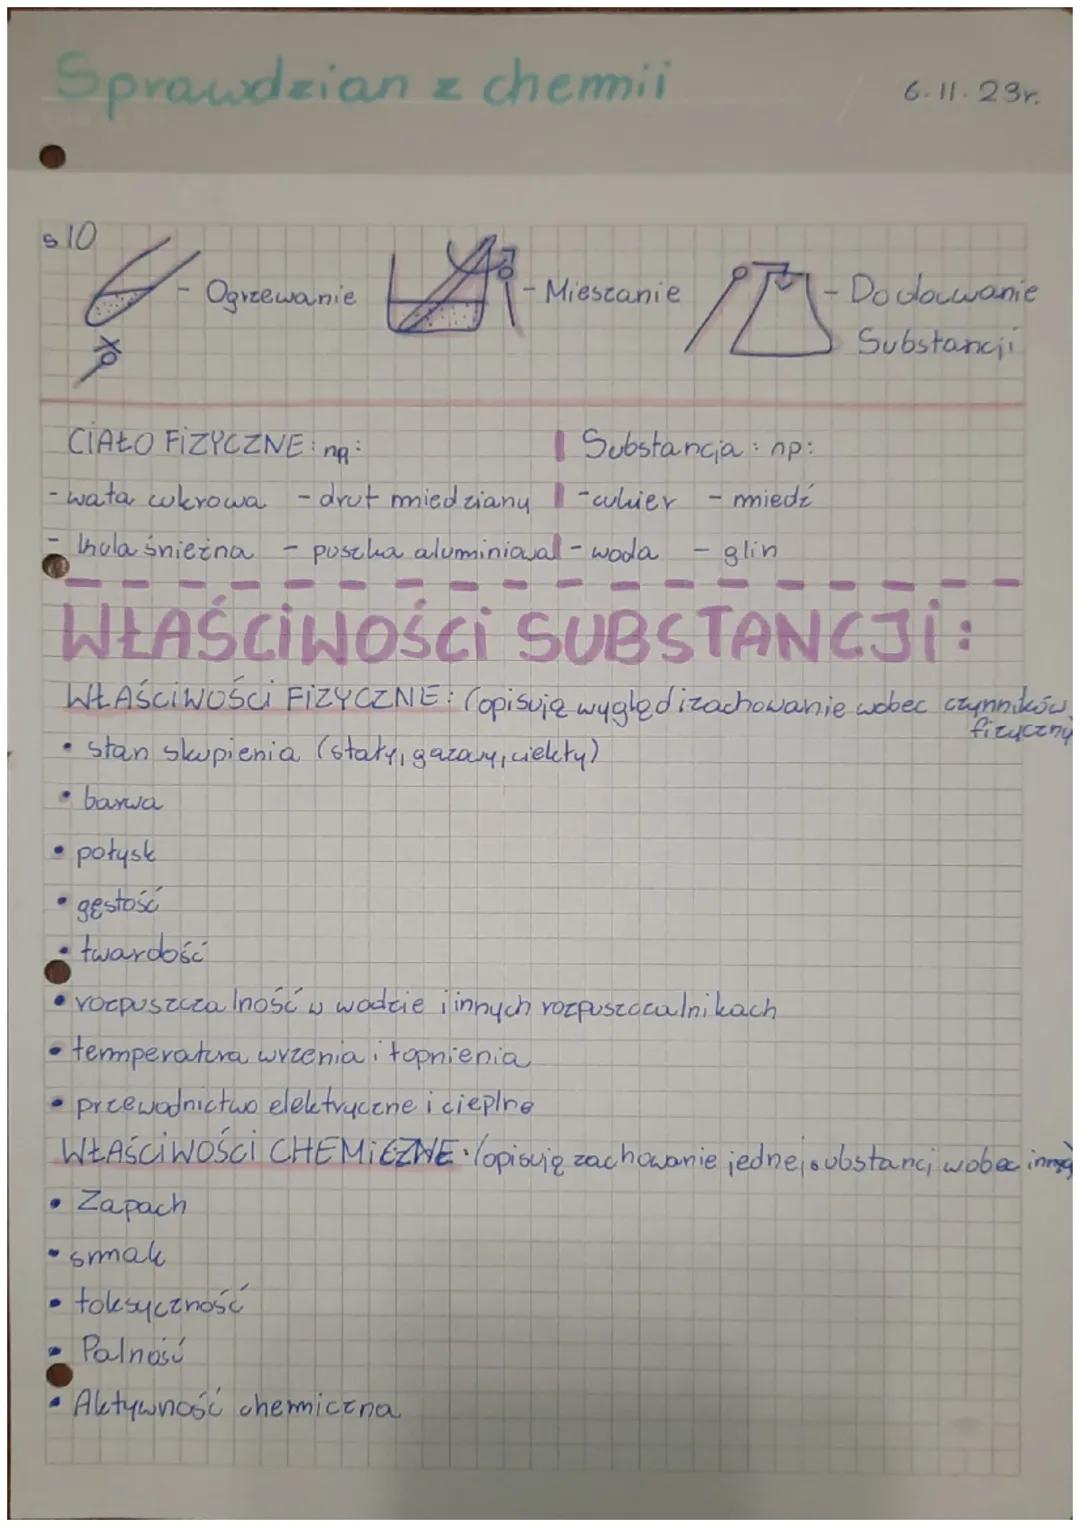 Sprawdzian z chemii
6.11.23r.
s 10
- Ogrzewanie
- Mieszanie
- Dodawanie
Substancji
CIAŁO FIZYCZNE: np:
Substancja: np:
- wata cukrowa - drut miedziany
- cukier - miedź
- kula śnieżna - puszka aluminiowa
- woda - glin
WŁAŚCIWOŚCI SUBSTANCJI:
WŁAŚCIWOŚCI FIZYCZNE: (opisują wygląd i zachowanie wobec czynników
fizyczny
• stan skupienia (stały, gazowy, ciekły)
• barwa
• połysk
• gęstość
• twardość
• rozpuszczalność w wodzie i innych rozpuszczalnikach
• temperatura wrzenia i topnienia
• przewodnictwo elektryczne i cieplne
WŁAŚCIWOŚCI CHEMICZNE: (opisują zachowanie jednej substancj wobec innej
• Zapach
• smak
• toksyczność
• Palność
• Aktywność chemiczna